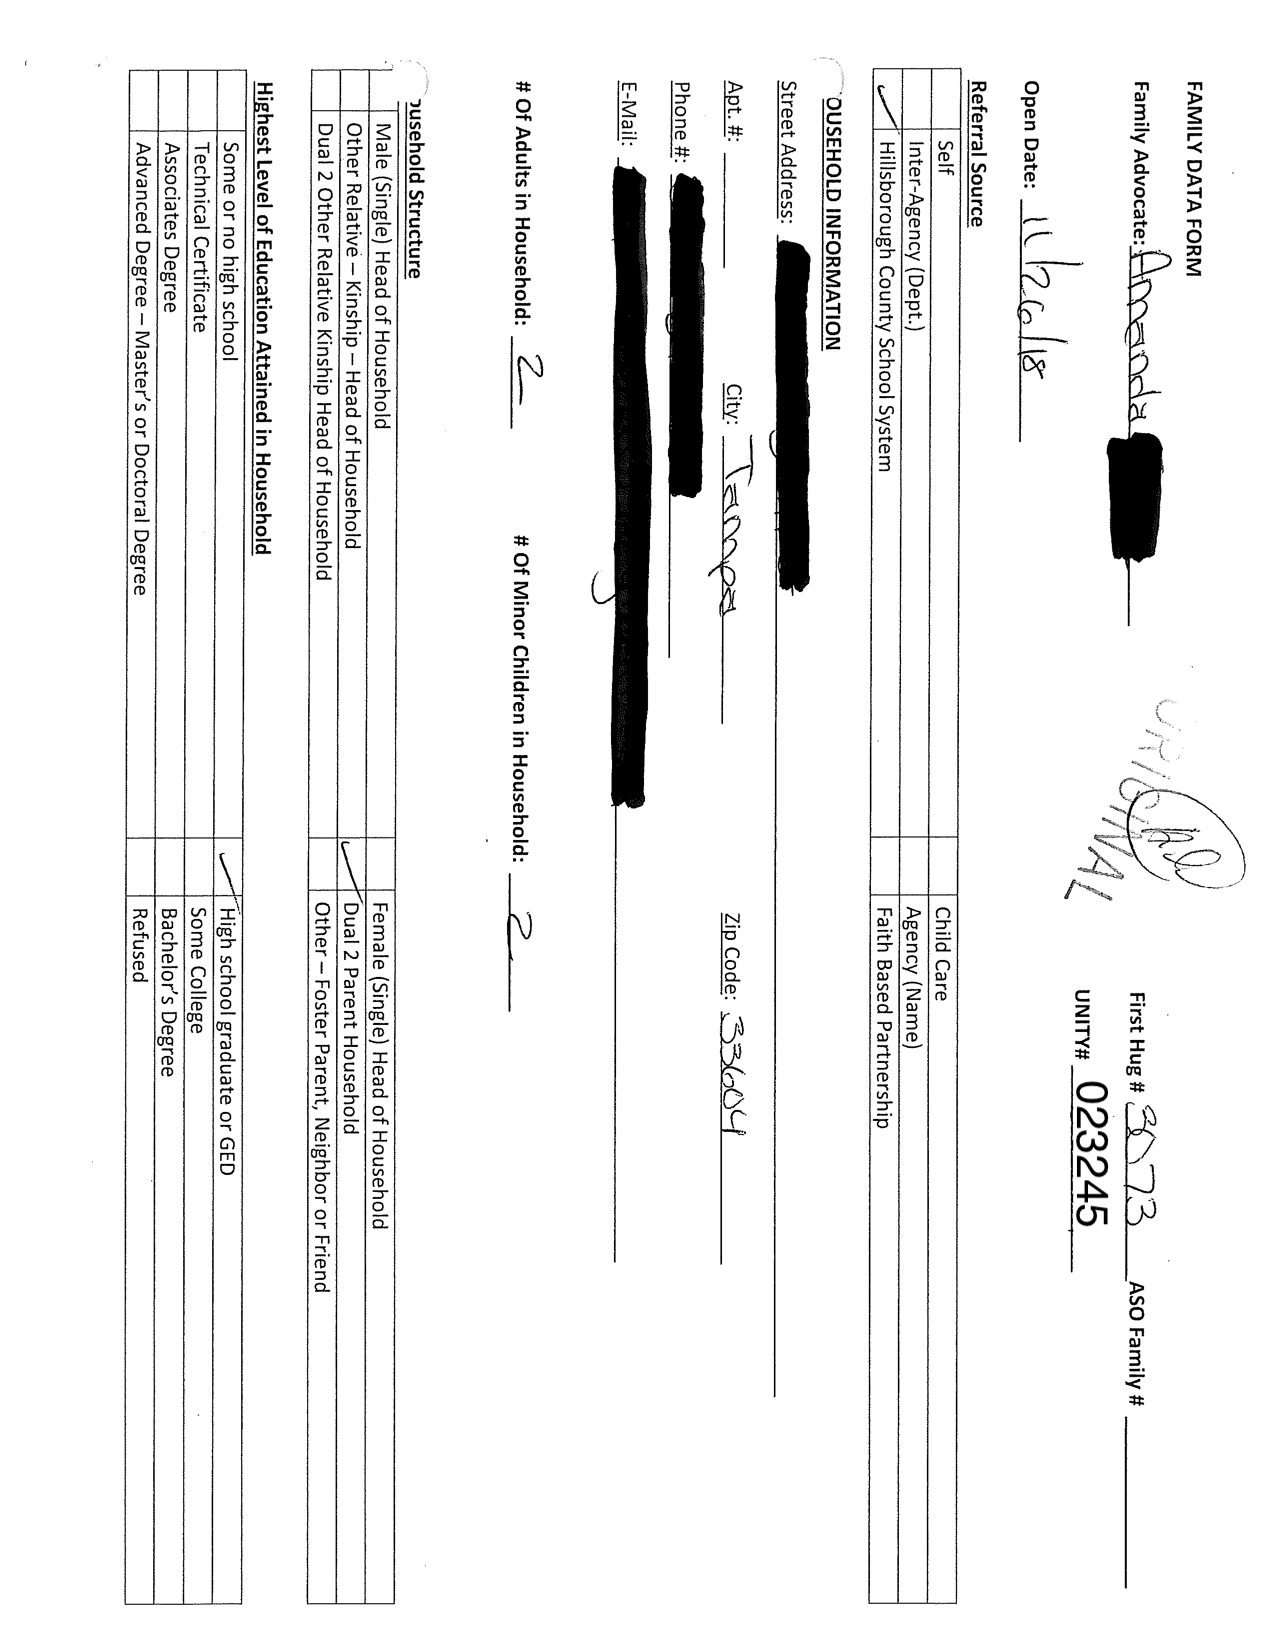 FAMILY DATA FORM
Family Advocate: Amanda
First Hug # 3073 ASO Family #
ORIGINAL
UNITY# 023245
Open Date: 11/26/18
Referral Source
Self Child Care
Inter-Agency (Dept.) Agency (Name)
✓ Hillsborough County School System Faith Based Partnership
OUSEHOLD INFORMATION
Street Address:
Apt. #: City: Tampa Zip Code: 33604
Phone #:
E-Mail:
# Of Adults in Household: 2 # Of Minor Children in Household: 2
ousehold Structure
Male (Single) Head of Household Female (Single) Head of Household
Other Relative – Kinship – Head of Household ✓ Dual 2 Parent Household
Dual 2 Other Relative Kinship Head of Household Other – Foster Parent, Neighbor or Friend
Highest Level of Education Attained in Household
Some or no high school ✓ High school graduate or GED
Technical Certificate Some College
Associates Degree Bachelor's Degree
Advanced Degree – Master's or Doctoral Degree Refused